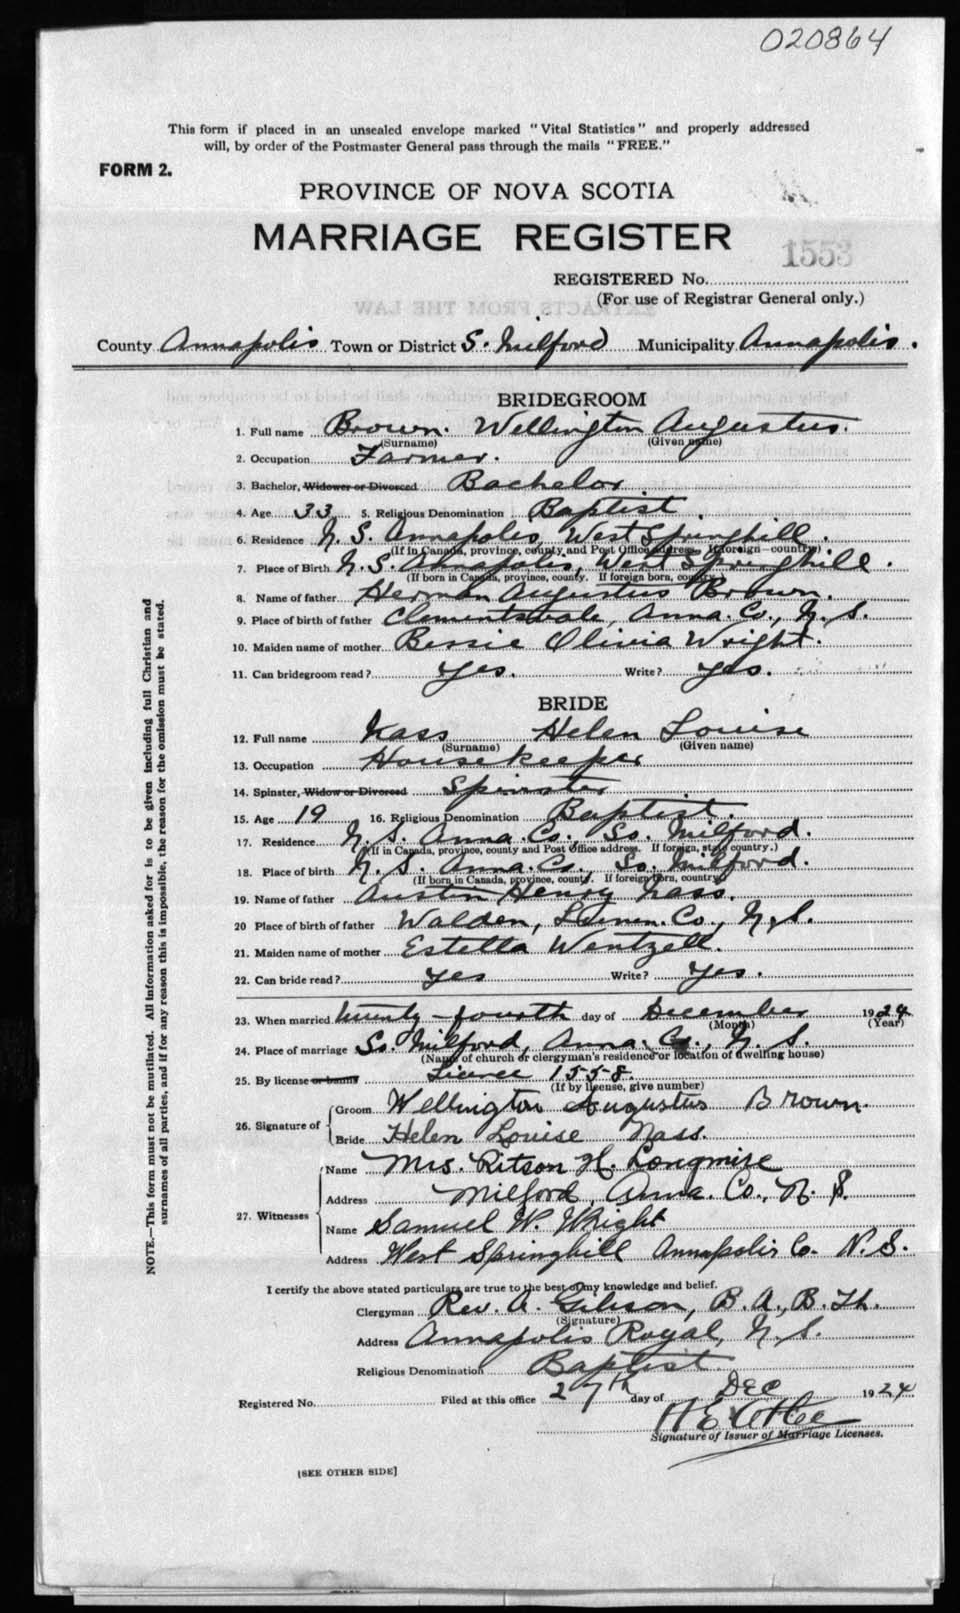 020864
This form if placed in an unsealed envelope marked "Vital Statistics" and properly addressed
will, by order of the Postmaster General pass through the mails "FREE."
FORM 2.
PROVINCE OF NOVA SCOTIA
MARRIAGE REGISTER
1553
REGISTERED No.
(For use of Registrar General only.)
EXTRACTS FROM THE LAW
County Annapolis Town or District S. Milford Municipality Annapolis.
BRIDEGROOM
1. Full name Brown. Wellington Augustus.
(Surname) (Given name)
2. Occupation Farmer.
3. Bachelor, Widower or Divorced Bachelor
4. Age 33 5. Religious Denomination Baptist.
6. Residence N. S. Annapolis, West Springhill.
(If in Canada, province, county and Post Office address. If foreign—country)
7. Place of Birth N. S. Annapolis, West Springhill.
(If born in Canada, province, county. If foreign born, country)
8. Name of father Herman Augustus Brown.
9. Place of birth of father Clementsvale, Anna. Co., N. S.
10. Maiden name of mother Bessie Olivia Wright.
11. Can bridegroom read? Yes. Write? Yes.
BRIDE
12. Full name Nass Helen Louise
(Surname) (Given name)
13. Occupation Housekeeper
14. Spinster, Widow or Divorced Spinster
15. Age 19 16. Religious Denomination Baptist.
17. Residence N. S. Anna. Co., So. Milford.
(If in Canada, province, county and Post Office address. If foreign, state country.)
18. Place of birth N. S. Anna. Co., So. Milford.
(If born in Canada, province, county. If foreign born, country)
19. Name of father Austin Henry Nass.
20 Place of birth of father Walden, Co., N. S.
21. Maiden name of mother Estella Wentzell.
22. Can bride read? Yes Write? Yes.
23. When married twenty-fourth day of December 1924
(Month) (Year)
24. Place of marriage So. Milford, Anna. Co., N. S.
(Name of church or clergyman's residence or location of dwelling house)
25. By license or banns Licence 1558.
(If by license, give number)
26. Signature of Groom Wellington Augustus Brown.
Bride Helen Louise Nass.
27. Witnesses Name Mrs. Ritson H. Longmire
Address Milford, Anna. Co., N. S.
Name Samuel W. Wright
Address West Springhill Annapolis Co. N. S.
I certify the above stated particulars are true to the best of my knowledge and belief.
Clergyman Rev. A. Gibson, B. A., B. Th.
(Signature)
Address Annapolis Royal, N. S.
Religious Denomination Baptist.
Registered No. Filed at this office 27th day of Dec 1924
Signature of Issuer of Marriage Licenses.
[SEE OTHER SIDE]
NOTE.—This form must not be mutilated. All information asked for is to be given including full Christian and
surnames of all parties, and if for any reason this is impossible, the reason for the omission must be stated.